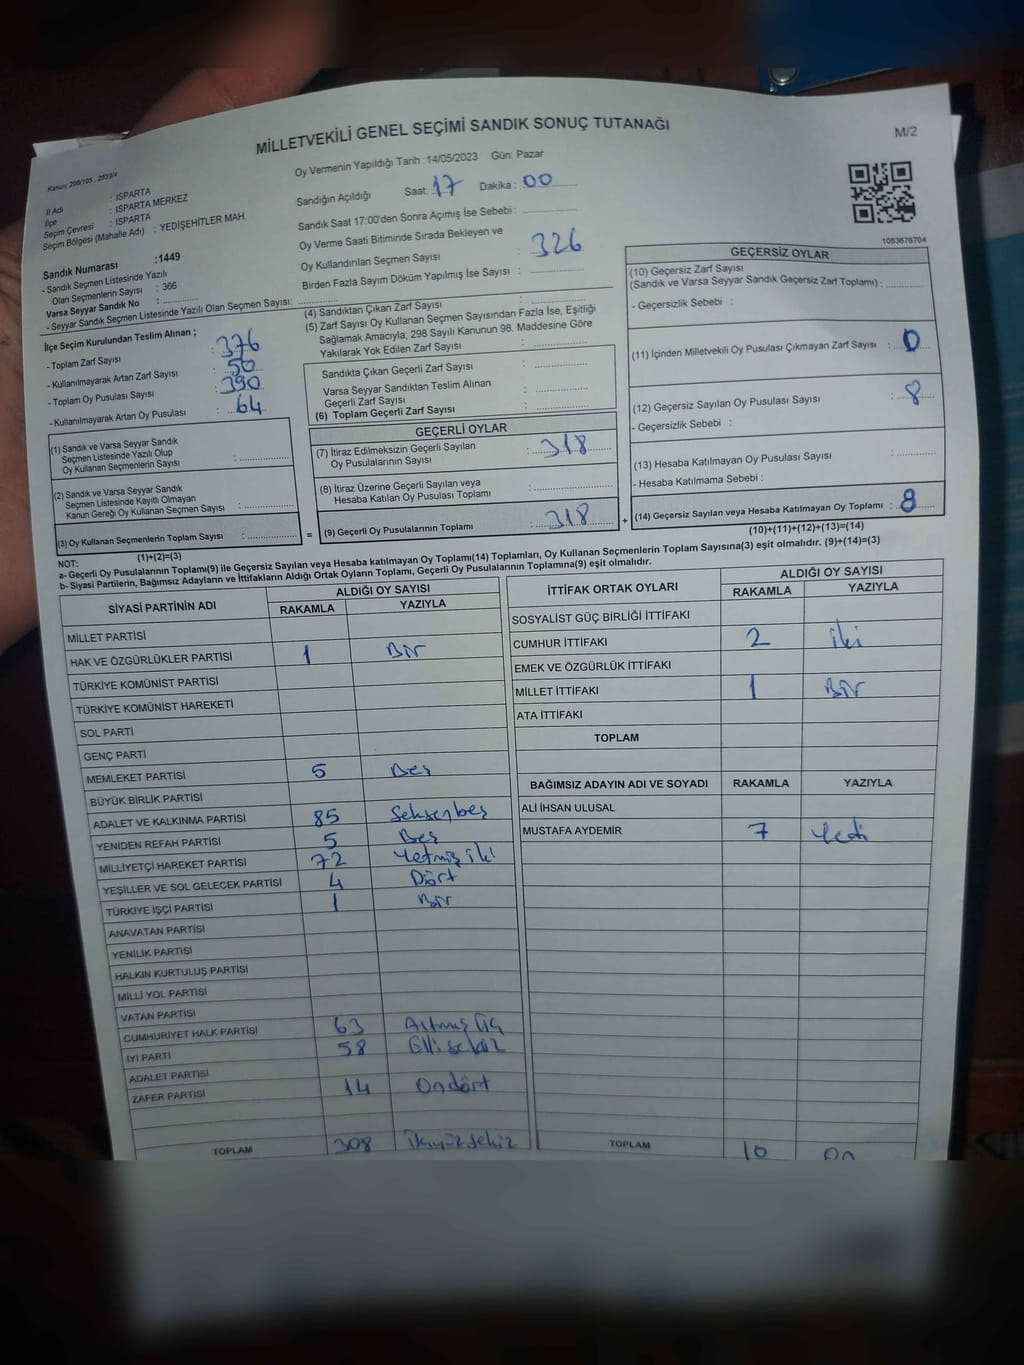 MİLLETVEKİLİ GENEL SEÇİMİ SANDIK SONUÇ TUTANAĞI
M/2
Kanun: 298/105 , 2839/4
Oy Vermenin Yapıldığı Tarih : 14/05/2023 Gün: Pazar
İl Adı : ISPARTA
İlçe : ISPARTA MERKEZ
Seçim Çevresi : ISPARTA
Seçim Bölgesi (Mahalle Adı) : YEDİŞEHİTLER MAH.
Sandığın Açıldığı Saat: 17 Dakika : 00
Sandık Saat 17:00'den Sonra Açımış İse Sebebi :
Oy Verme Saati Bitiminde Sırada Bekleyen ve
Oy Kullandırılan Seçmen Sayısı : 326
Birden Fazla Sayım Döküm Yapılmış İse Sayısı :
1083678704
Sandık Numarası :1449
- Sandık Seçmen Listesinde Yazılı
Olan Seçmenlerin Sayısı : 366
Varsa Seyyar Sandık No :
- Seyyar Sandık Seçmen Listesinde Yazılı Olan Seçmen Sayısı:
İlçe Seçim Kurulundan Teslim Alınan ;
- Toplam Zarf Sayısı : 376
- Kullanılmayarak Artan Zarf Sayısı : 50
- Toplam Oy Pusulası Sayısı : 390
- Kullanılmayarak Artan Oy Pusulası : 64
(1) Sandık ve Varsa Seyyar Sandık
Seçmen Listesinde Yazılı Olup
Oy Kullanan Seçmenlerin Sayısı :
(2) Sandık ve Varsa Seyyar Sandık
Seçmen Listesinde Kayıtlı Olmayan
Kanun Gereği Oy Kullanan Seçmen Sayısı :
(3) Oy Kullanan Seçmenlerin Toplam Sayısı :
(1)+(2)=(3)
(4) Sandıktan Çıkan Zarf Sayısı :
(5) Zarf Sayısı Oy Kullanan Seçmen Sayısından Fazla İse, Eşitliği
Sağlamak Amacıyla; 298 Sayılı Kanunun 98. Maddesine Göre
Yakılarak Yok Edilen Zarf Sayısı :
Sandıkta Çıkan Geçerli Zarf Sayısı :
Varsa Seyyar Sandıktan Teslim Alınan
Geçerli Zarf Sayısı :
(6) Toplam Geçerli Zarf Sayısı :
GEÇERLİ OYLAR
(7) İtiraz Edilmeksizin Geçerli Sayılan
Oy Pusulalarının Sayısı : 318
(8) İtiraz Üzerine Geçerli Sayılan veya
Hesaba Katılan Oy Pusulası Toplamı :
= (9) Geçerli Oy Pusulalarının Toplamı : 318 +
GEÇERSİZ OYLAR
(10) Geçersiz Zarf Sayısı
(Sandık ve Varsa Seyyar Sandık Geçersiz Zarf Toplamı) :
- Geçersizlik Sebebi :
(11) İçinden Milletvekili Oy Pusulası Çıkmayan Zarf Sayısı : 0
(12) Geçersiz Sayılan Oy Pusulası Sayısı : 8
- Geçersizlik Sebebi :
(13) Hesaba Katılmayan Oy Pusulası Sayısı :
- Hesaba Katılmama Sebebi :
(14) Geçersiz Sayılan veya Hesaba Katılmayan Oy Toplamı : 8
(10)+(11)+(12)+(13)=(14)
NOT:
a- Geçerli Oy Pusulalarının Toplamı(9) ile Geçersiz Sayılan veya Hesaba katılmayan Oy Toplamı(14) Toplamları, Oy Kullanan Seçmenlerin Toplam Sayısına(3) eşit olmalıdır. (9)+(14)=(3)
b- Siyasi Partilerin, Bağımsız Adayların ve İttifakların Aldığı Ortak Oyların Toplamı, Geçerli Oy Pusulalarının Toplamına(9) eşit olmalıdır.
SİYASİ PARTİNİN ADI ALDIĞI OY SAYISI
RAKAMLA YAZIYLA
MİLLET PARTİSİ
HAK VE ÖZGÜRLÜKLER PARTİSİ 1 Bir
TÜRKİYE KOMÜNİST PARTİSİ
TÜRKİYE KOMÜNİST HAREKETİ
SOL PARTİ
GENÇ PARTİ
MEMLEKET PARTİSİ 5 Beş
BÜYÜK BİRLİK PARTİSİ
ADALET VE KALKINMA PARTİSİ 85 Seksenbeş
YENİDEN REFAH PARTİSİ 5 Beş
MİLLİYETÇİ HAREKET PARTİSİ 72 Yetmiş iki
YEŞİLLER VE SOL GELECEK PARTİSİ 4 Dört
TÜRKİYE İŞÇİ PARTİSİ 1 Bir
ANAVATAN PARTİSİ
YENİLİK PARTİSİ
HALKIN KURTULUŞ PARTİSİ
MİLLİ YOL PARTİSİ
VATAN PARTİSİ
CUMHURİYET HALK PARTİSİ 63 Altmış Üç
İYİ PARTİ 58 Elli sekiz
ADALET PARTİSİ
ZAFER PARTİSİ 14 Ondört
TOPLAM 308
İTTİFAK ORTAK OYLARI ALDIĞI OY SAYISI
RAKAMLA YAZIYLA
SOSYALİST GÜÇ BİRLİĞİ İTTİFAKI
CUMHUR İTTİFAKI 2 iki
EMEK VE ÖZGÜRLÜK İTTİFAKI
MİLLET İTTİFAKI 1 Bir
ATA İTTİFAKI
TOPLAM
BAĞIMSIZ ADAYIN ADI VE SOYADI RAKAMLA YAZIYLA
ALİ İHSAN ULUSAL
MUSTAFA AYDEMİR 7 Yedi
TOPLAM 10 On